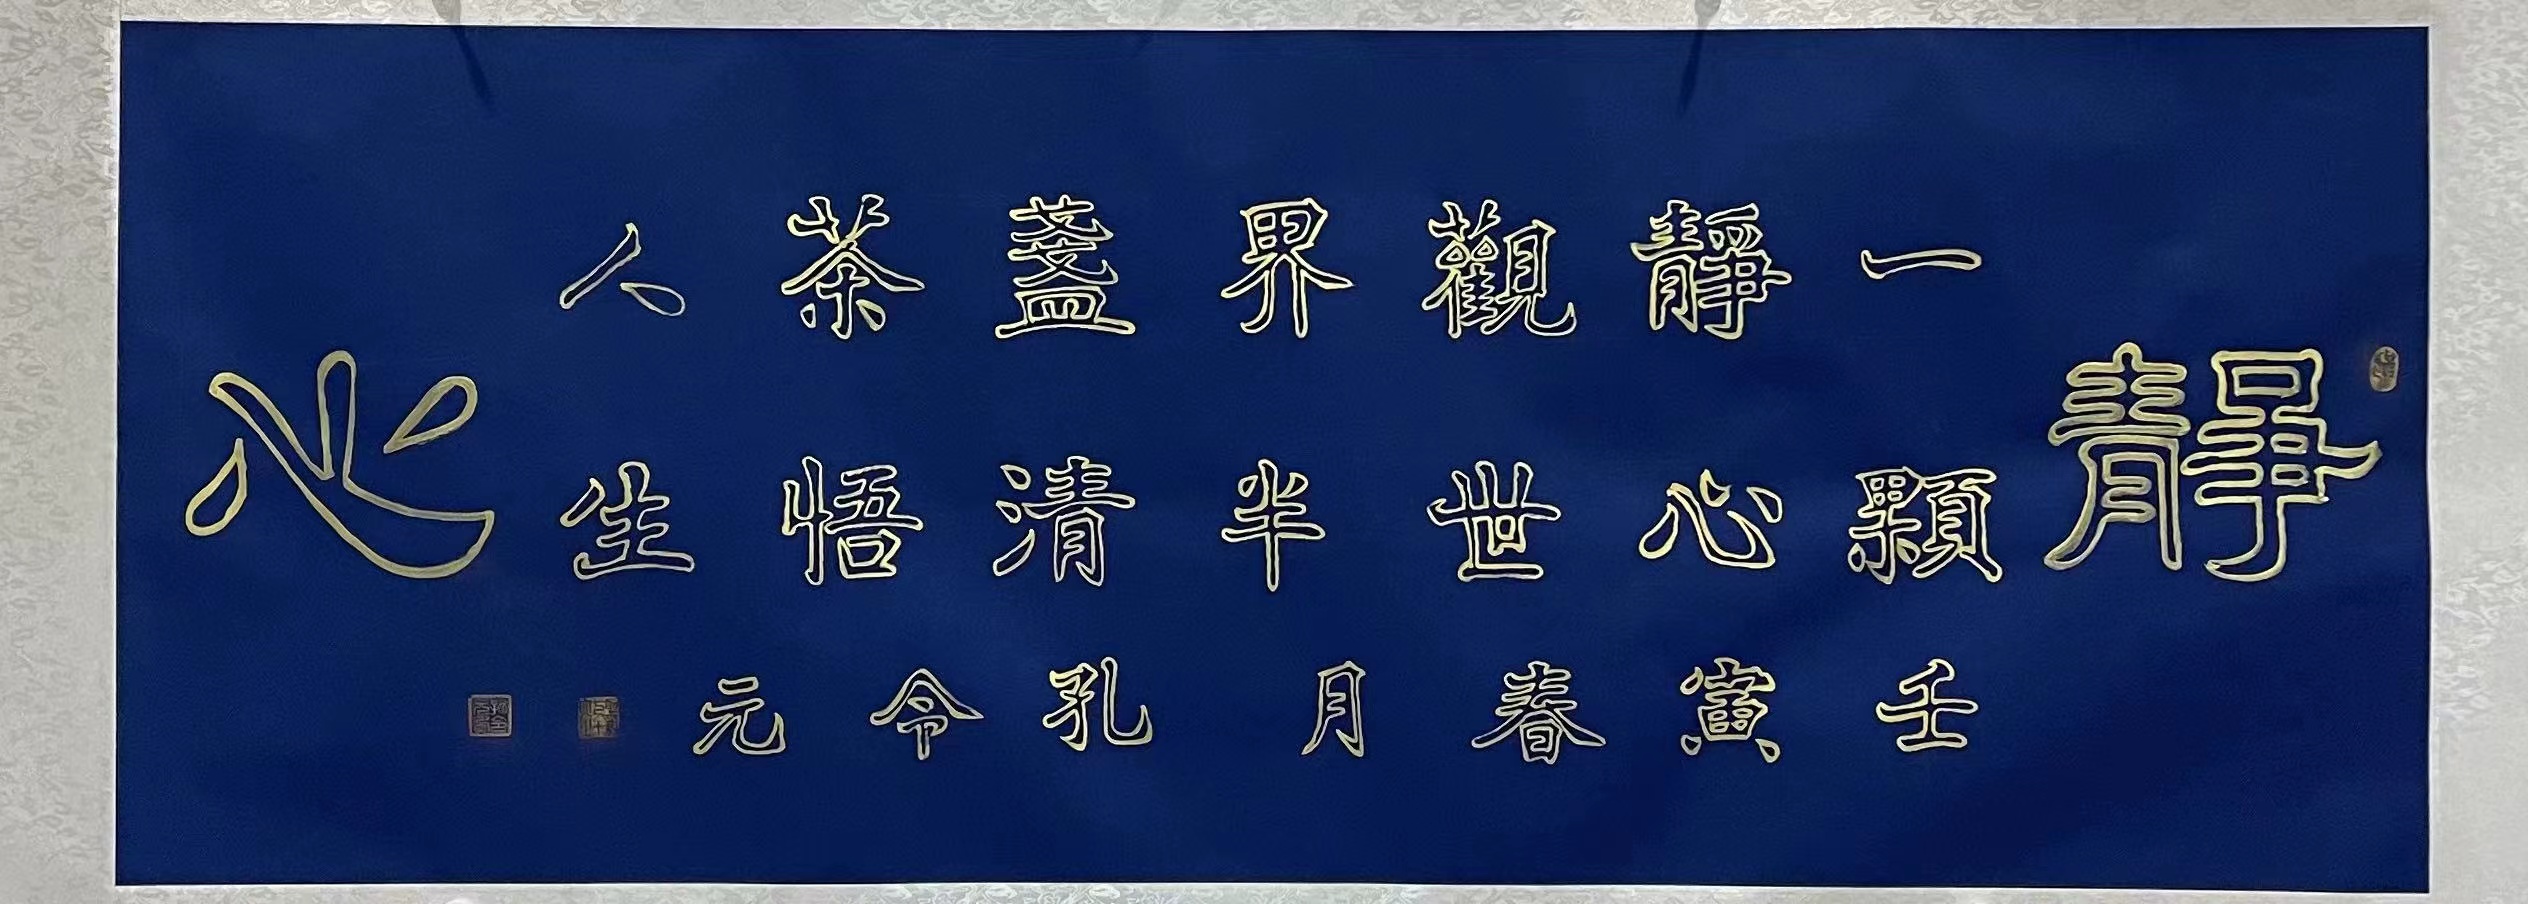 靜心
一顆
靜心
觀世
界半
盞清
茶悟
人生
壬寅春月 孔令元